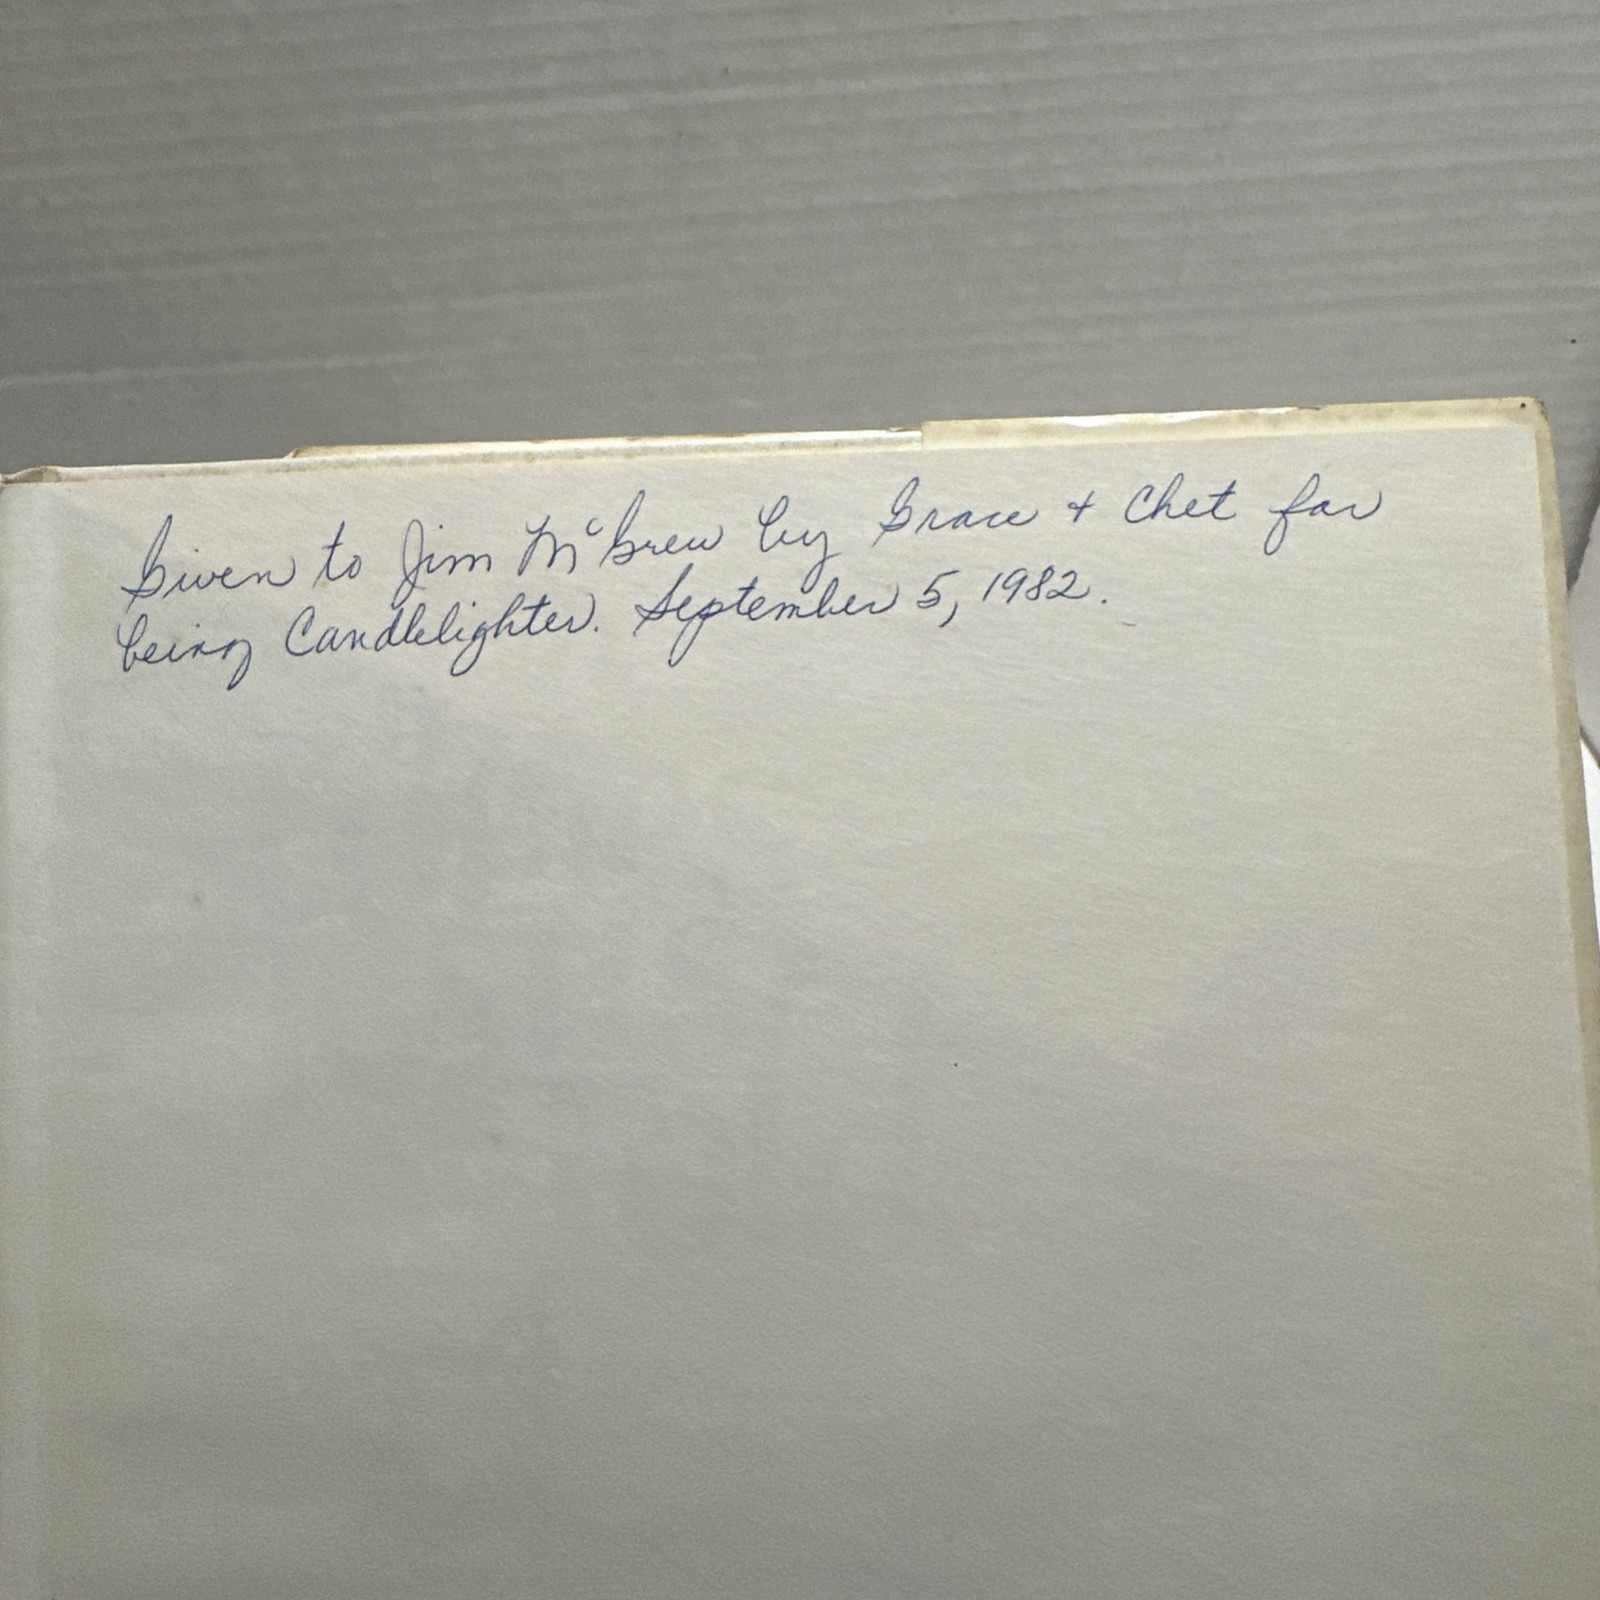 Given to Jim McGrew by Grace + Chet for
being Candlelighter. September 5, 1982.